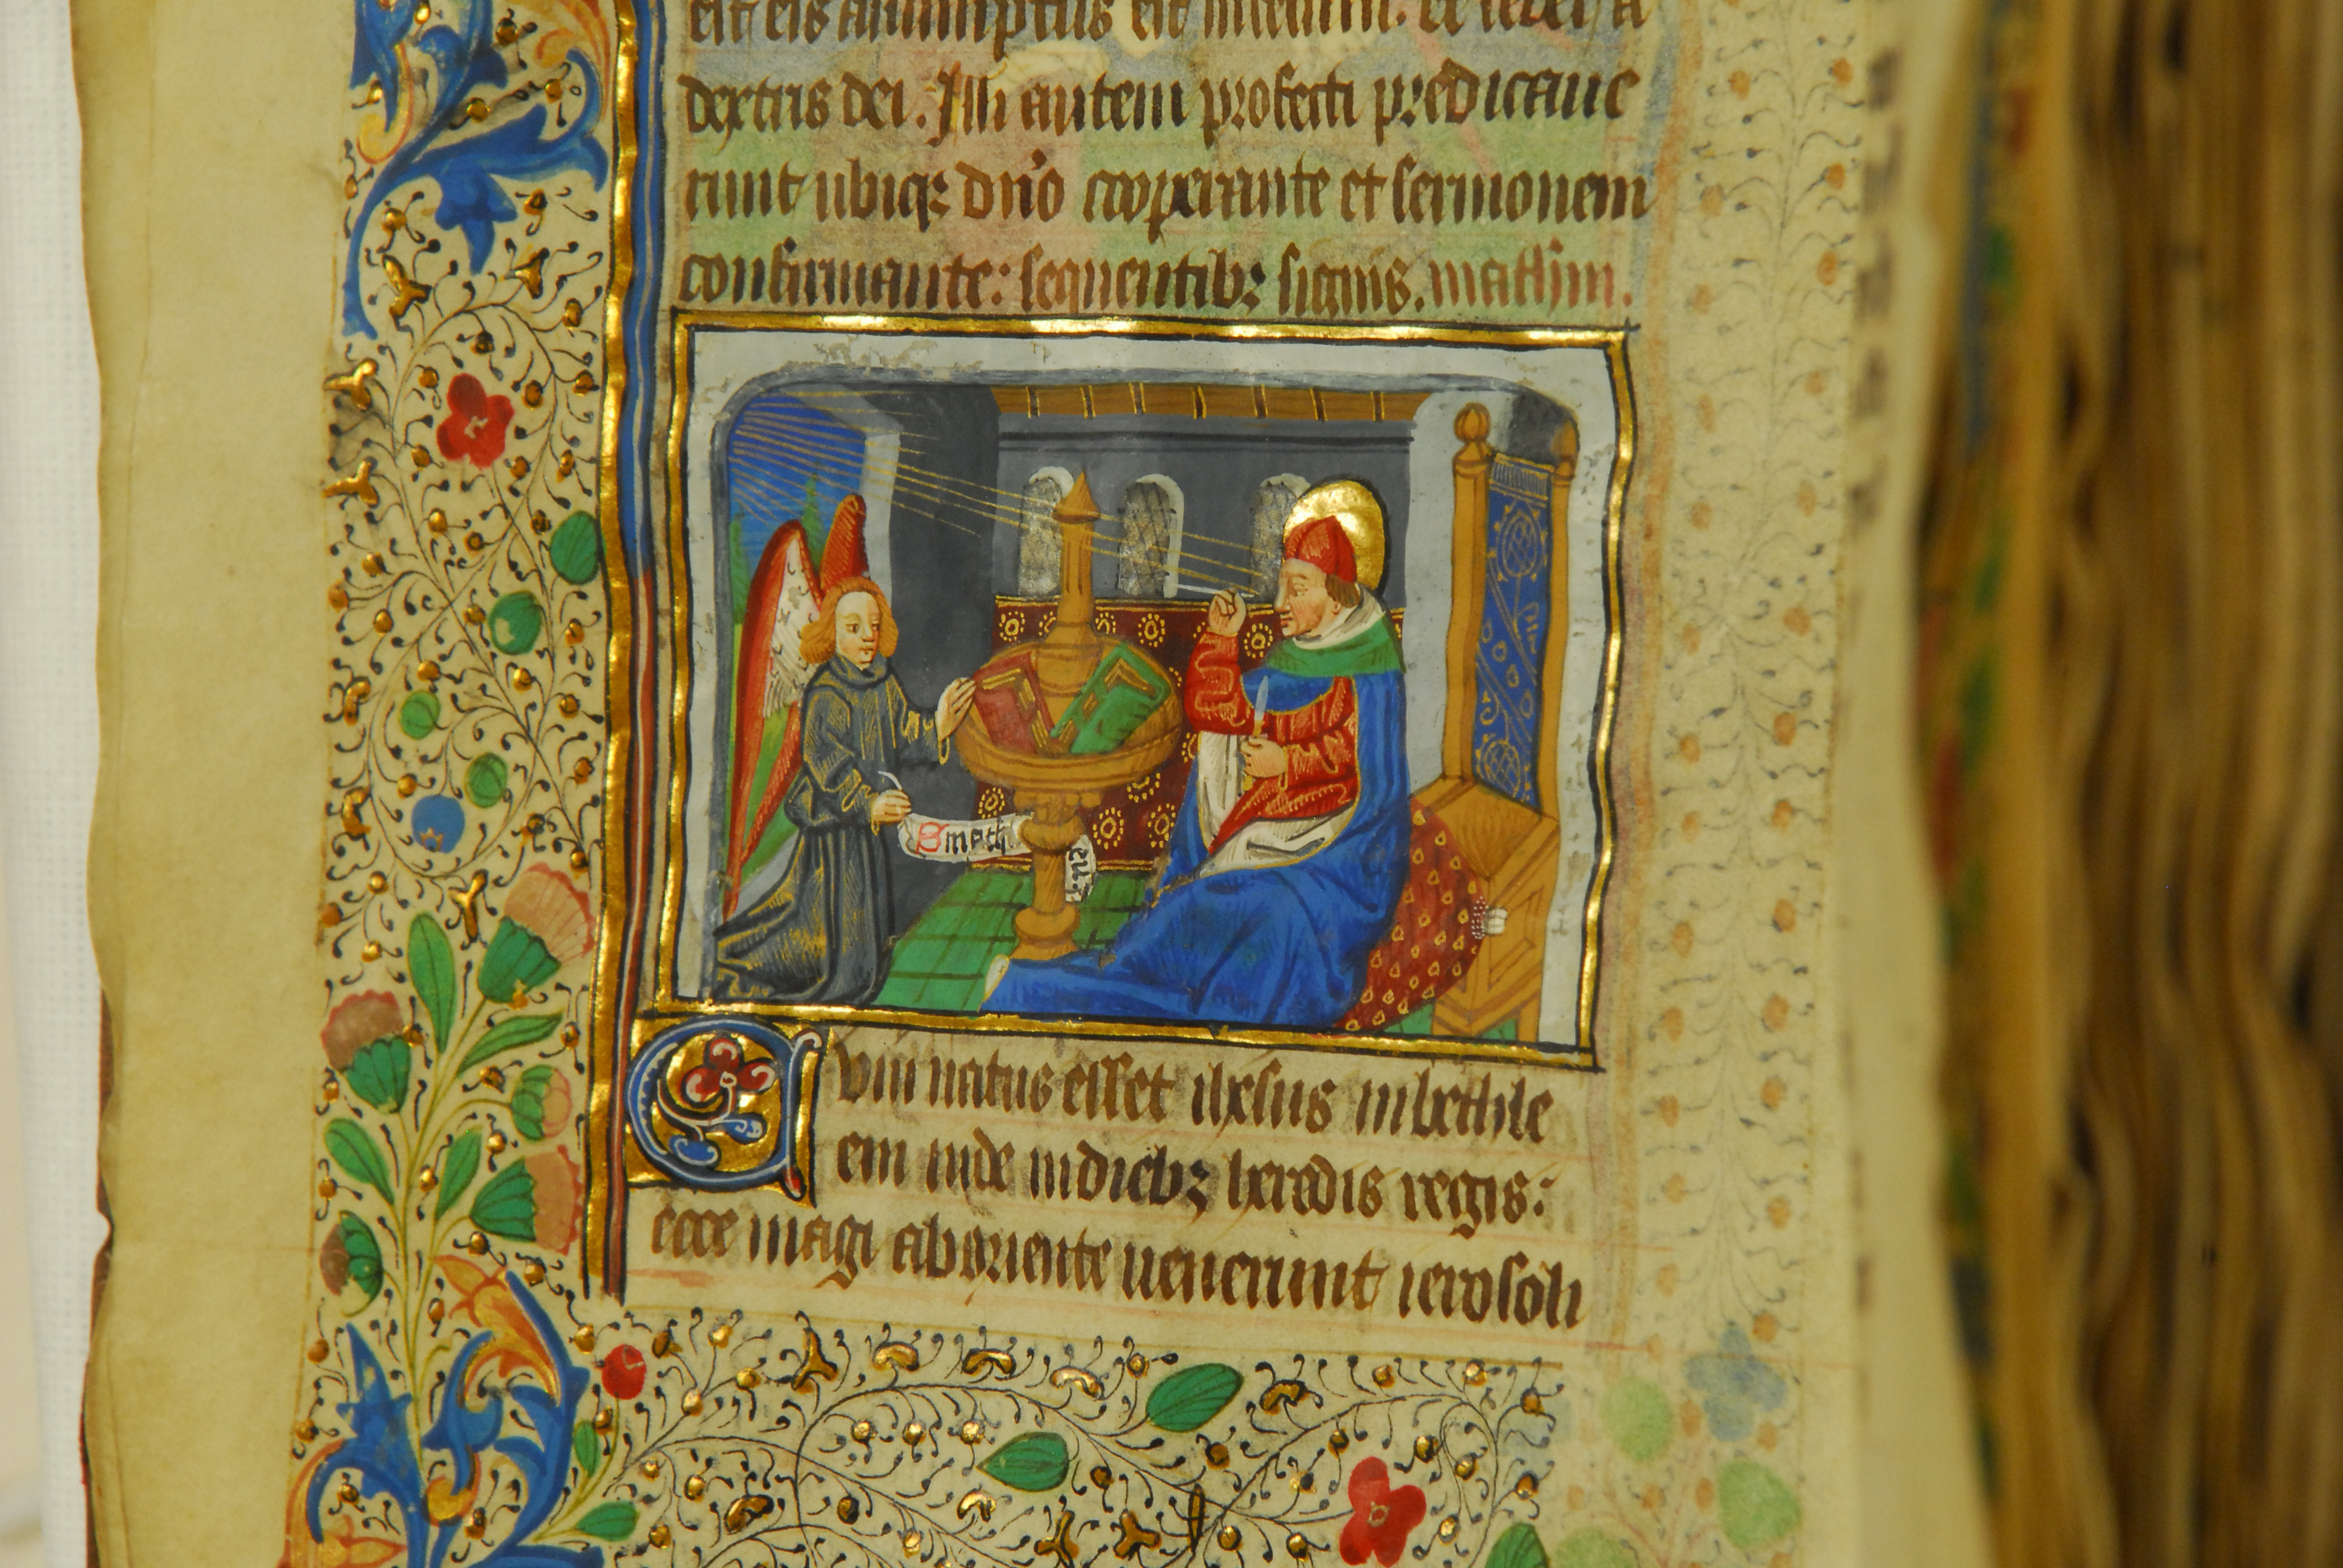 est eis assumptus est in celum. et sedet a
dextris dei. Illi autem profecti predicaue
runt ubiqꝫ dn̄o cooperante et sermonem
confirmante: sequentibꝫ signis. mathm̄.
S math
eu
Cum natus esset ihesus in bethle
em iude in diebꝫ herodis regis:
ecce magi ab oriente uenerunt ierosoli